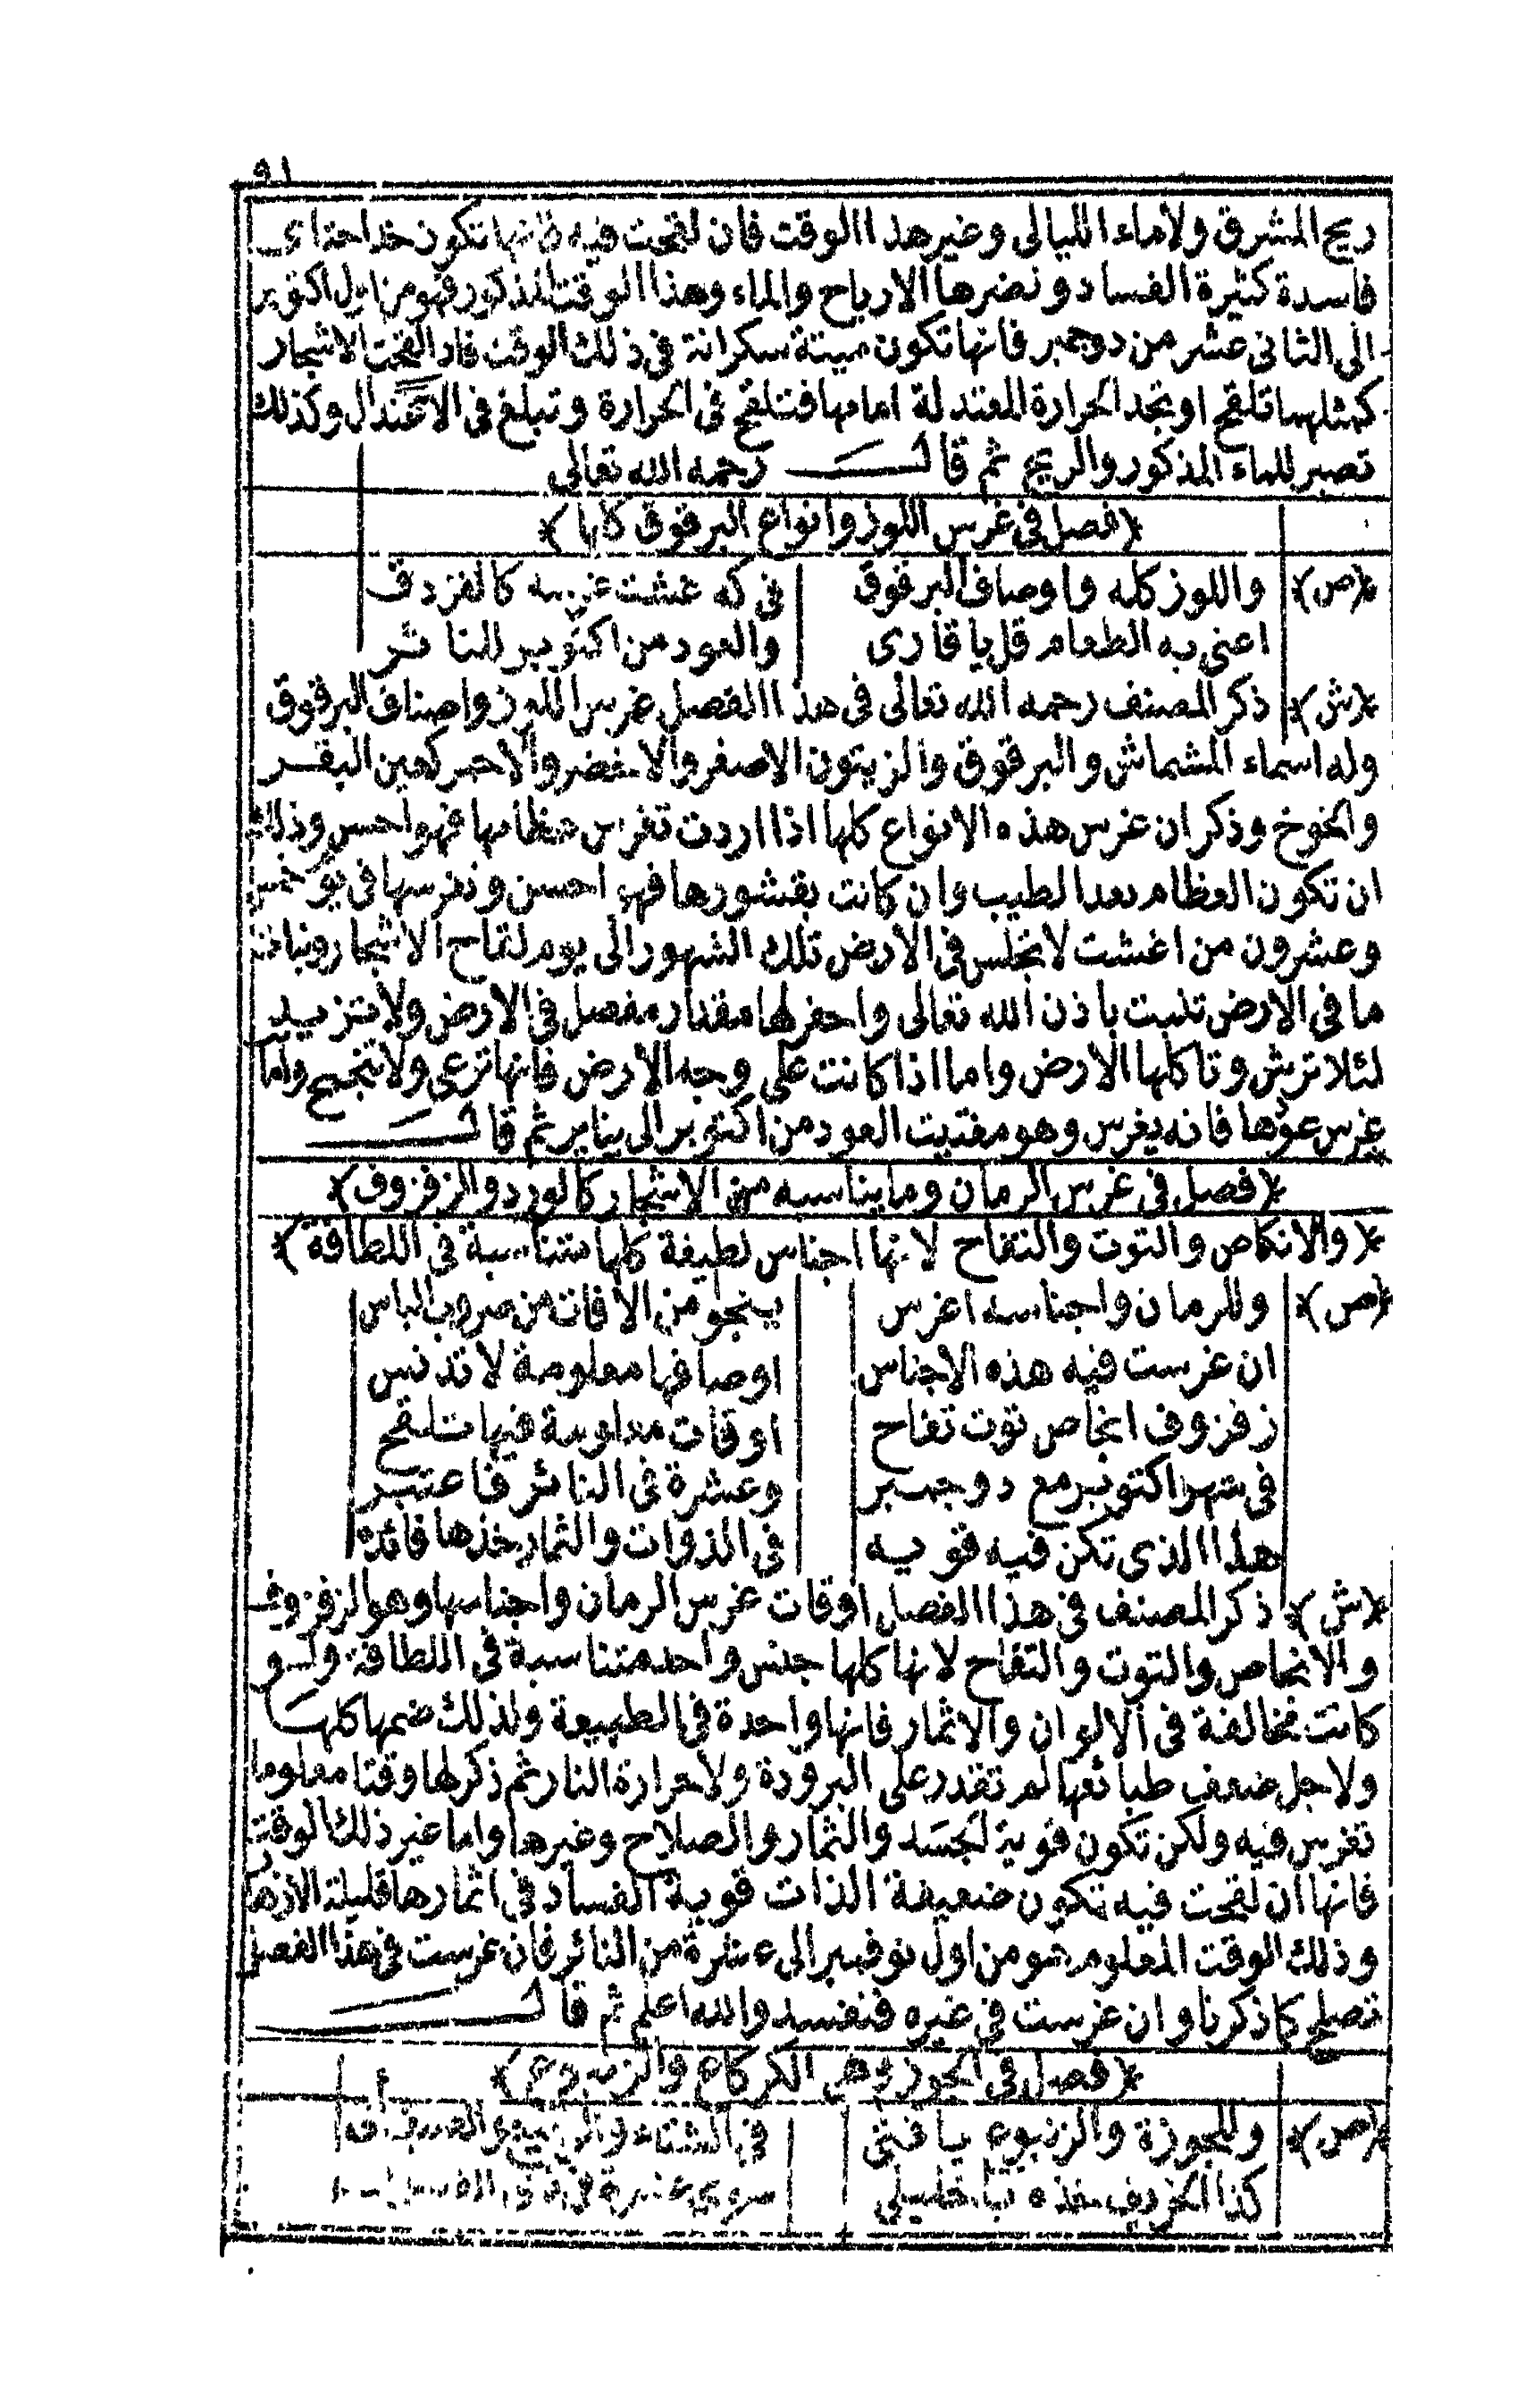 ٩١
ريح المشرق ولا ماء الليالى وغير هذا الوقت فان لقحت فيه فانها تكون خداجة اى
فاسدة كثيرة الفساد ونضرها الارياح والماء وهذا الوقت المذكور فهو من اول اكتوبر
الى الثانى عشر من دوجمبر فانها تكون ميتة سكرانة فى ذلك الوقت فاد القحت الاشجار
كمثلها تلقح او تجد الحرارة المعتدلة امامها فتلقح فى الحرارة وتبلغ فى الاعتدال وكذلك
تصبر للماء المذكور والريح ثم قال رحمه الله تعالى
﴿فصل فى غرس اللوز وانواع البرقوق كلها﴾
﴿ص﴾ واللوز كله واوصاف البرقوق فى كه غشت غرسه كالفزدق
اعنى به الطعام قل يا قارى والعود من اكتوبر للنائر
﴿ش﴾ ذكر المصنف رحمه الله تعالى فى هذا الفصل غرس اللوز واصناف البرقوق
وله اسماء المشماش والبرقوق والزيتون الاصفر والاخضر والاحمر كعين البقر
والخوخ وذكر ان غرس هذه الانواع كلها اذا اردت تغرس عظامها فهو احسن وذلك
ان تكون العظام بعد الطيب وان كانت بقشورها فهو احسن وتغرسها فى يو خمس
وعشرون من اغشت لا تجلس فى الارض تلك الشهور الى يوم لقاح الاشجار ونبات
ما فى الارض تنبت باذن الله تعالى واحفر لها مقدار مفصل فى الارض ولا تزيد
لئلا ترش وتاكلها الارض واما اذا كانت على وجه الارض فانها ترعى ولا تنجح واما
غرس عودها فانه يغرس وهو مفتيت العود من اكتوبر الى يناير ثم قال
﴿فصل فى غرس الرمان وما يناسبه من الاشجار كالورد والزفزوف﴾
﴿والانكاص والتوت والتفاح لانها اجناس لطيفة كلها متناسبة فى اللطافة﴾
﴿ص﴾ وللرمان واجناسه اغرس ينجو من الافات من ضروب الباس
ان غرست فيه هذه الاجناس اوصافها معلومة لا تدنس
زفزوف انجاص توت تفاح اوقات معلومة فيها تلقح
فى شهر اكتوبر مع دوجمبر وعشرة فى النائر فاعتبر
هذا الذى تكن فيه قويه فى الذوات والثمار خذها فائده
﴿ش﴾ ذكر المصنف فى هذا الفصل اوقات غرس الرمان واجناسها وهو الزفزوف
والانجاص والتوت والتفاح لانها كلها جنس واحد متناسبة فى اللطافة ولو
كانت مخالفة فى الالوان والاثمار فانها واحدة فى الطبيعة ولذلك ضمها كلها
ولاجل ضعف طبائعها لم تقدر على البرودة ولا حرارة النار ثم ذكر لها وقتا معلوما
تغرس فيه ولكن تكون قوية الجسد والثمار والصلاح وغيرها واما غير ذلك الوقت
فانها ان لقحت فيه تكون ضعيفة الذات قوية الفساد فى اثمارها قليلة الازهار
وذلك الوقت المعلوم هو من اول نوفمبر الى عشرة من النائر فان غرست فى هذا الفصل
تصلح كما ذكرنا وان غرست فى غيره فتفسد والله اعلم ثم قال
﴿فصل فى الجوز وهى الكركاع والزنبوع﴾
﴿ص﴾ وللجوزة والزنبوع يا فتى فى الشتاء
كذا الخريف خذه يا خليلى سوى عشرة فى